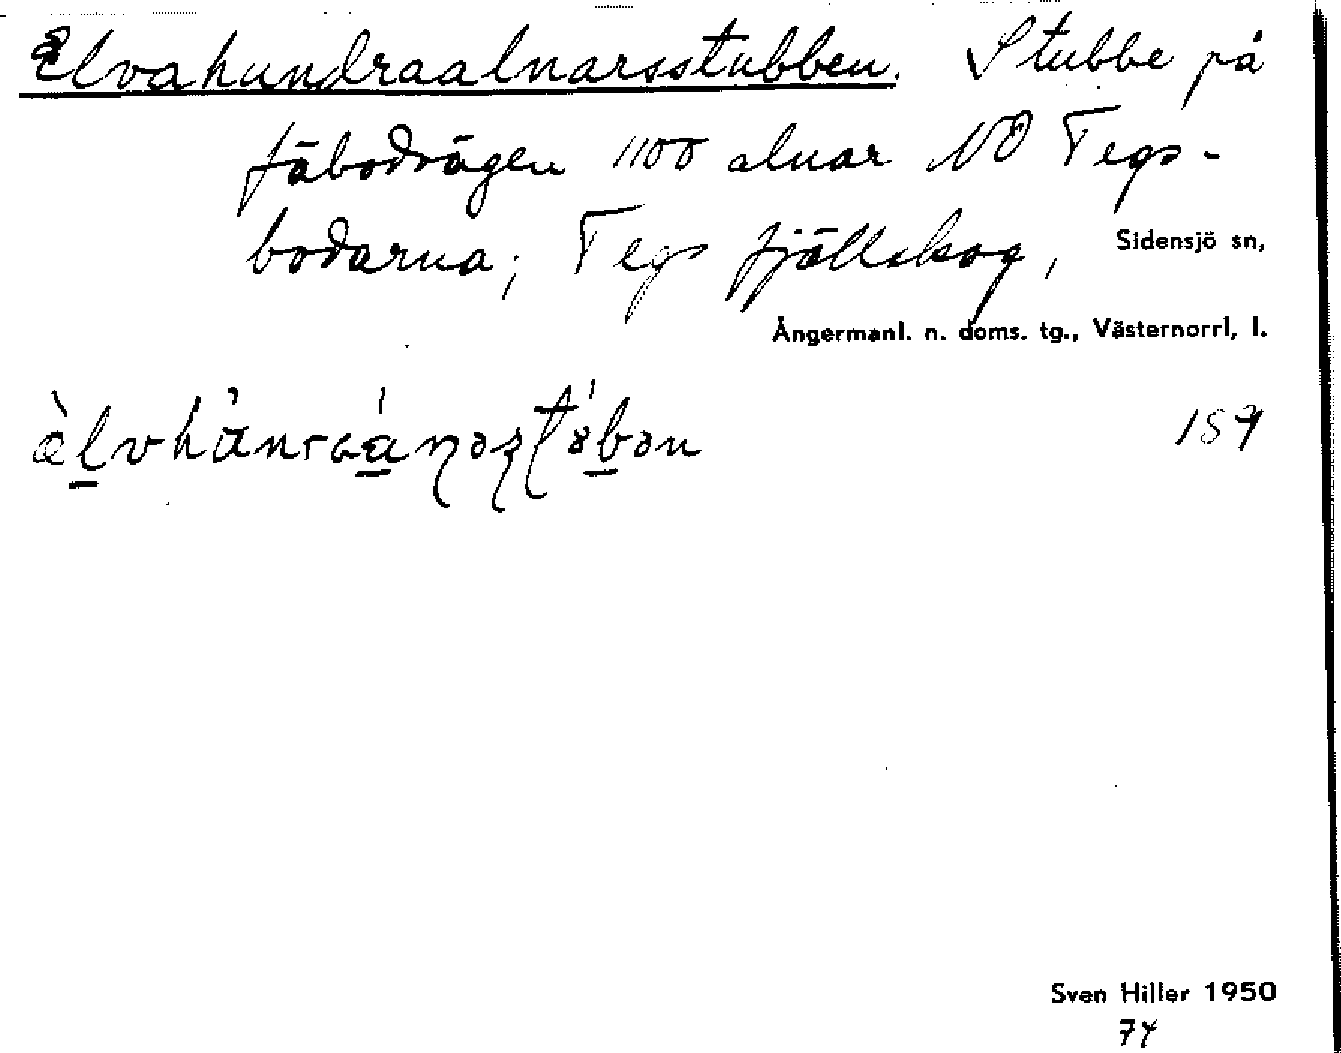 Elvahundraalnarsstubben. Stubbe på
fäbodvägen 1100 alnar NO Tegs-
bodarna; Tegs fjällskog, Sidensjö sn,
Ångermanl. n. doms. tg., Västernorrl, l.
159
Sven Hiller 1950
74